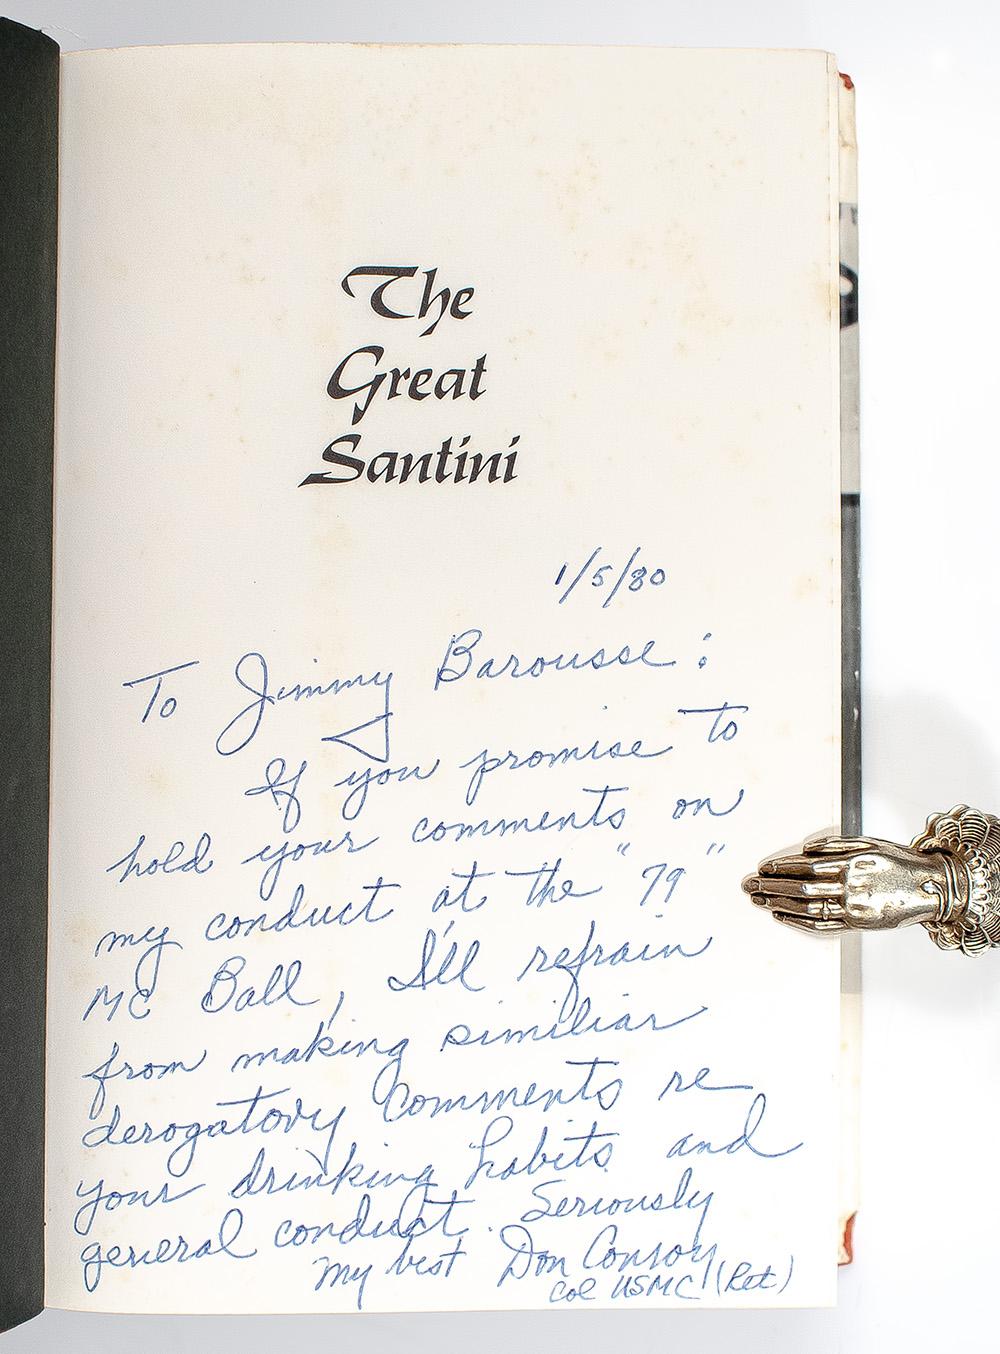 The
Great
Santini
1/5/80
To Jimmy Barousse:
If you promise to
hold your comments on
my conduct at the "79"
MC Ball, I'll refrain
from making similiar
derogatory comments re
your drinking habits and
general conduct. Seriously
my best Don Conroy
Col USMC (Ret)